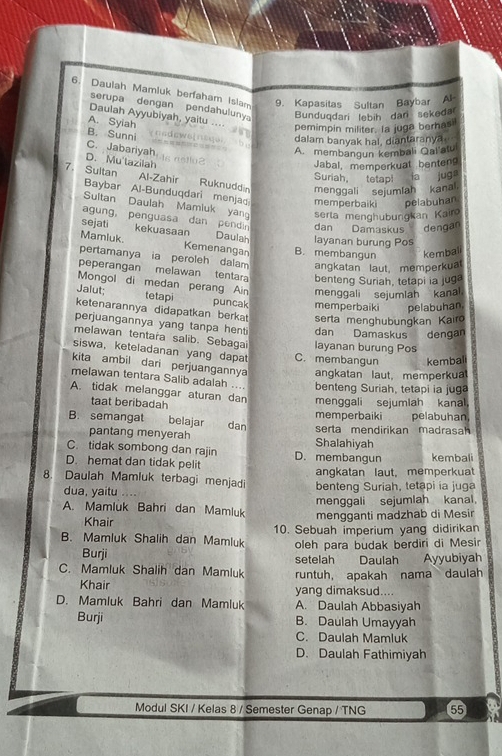 6. Daulah Mamluk berfaham Islam
serupa dengan pendahulunya
Daulah Ayyubiyah, yaitu ....
A. Syiah
B. Sunni
C. Jabariyah
D. Mu'tazilah
7. Sultan Al-Zahir Ruknuddin
Baybar Al-Bunduqdari menjadi
Sultan Daulah Mamluk yang
agung, penguasa dan pendiri
sejati kekuasaan Daulah
Mamluk. Kemenangan
pertamanya ia peroleh dalam
peperangan melawan tentara
Mongol di medan perang Ain
Jalut; tetapi puncak
ketenarannya didapatkan berkat
perjuangannya yang tanpa henti
melawan tentara salib. Sebagai
siswa, keteladanan yang dapat
kita ambil dari perjuangannya
melawan tentara Salib adalah ....
A. tidak melanggar aturan dan
taat beribadah
B. semangat belajar dan
pantang menyerah
C. tidak sombong dan rajin
D. hemat dan tidak pelit
8. Daulah Mamluk terbagi menjadi
dua, yaitu ....
A. Mamluk Bahri dan Mamluk
Khair
B. Mamluk Shalih dan Mamluk
Burji
C. Mamluk Shalih dan Mamluk
Khair
D. Mamluk Bahri dan Mamluk
Burji
9. Kapasitas Sultan Baybar Al-
Bunduqdari lebih dari sekedar
pemimpin militer. Ia juga berhasil
dalam banyak hal, diantaranya
A. membangun kembali Qal'atul
Jabal, memperkuat benteng
Suriah, tetapi ia juga
menggali sejumlah kanal,
memperbaiki pelabuhan,
serta menghubungkan Kairo
dan Damaskus dengan
layanan burung Pos
B. membangun kembali
angkatan laut, memperkuat
benteng Suriah, tetapi ia juga
menggali sejumlah kanal,
memperbaiki pelabuhan,
serta menghubungkan Kairo
dan Damaskus dengan
layanan burung Pos
C. membangun kembali
angkatan laut, memperkuat
benteng Suriah, tetapi ia juga
menggali sejumlah kanal,
memperbaiki pelabuhan,
serta mendirikan madrasah
Shalahiyah
D. membangun kembali
angkatan laut, memperkuat
benteng Suriah, tetapi ia juga
menggali sejumlah kanal,
mengganti madzhab di Mesir
10. Sebuah imperium yang didirikan
oleh para budak berdiri di Mesir
setelah Daulah Ayyubiyah
runtuh, apakah nama daulah
yang dimaksud....
A. Daulah Abbasiyah
B. Daulah Umayyah
C. Daulah Mamluk
D. Daulah Fathimiyah
Modul SKI / Kelas 8 / Semester Genap / TNG
55